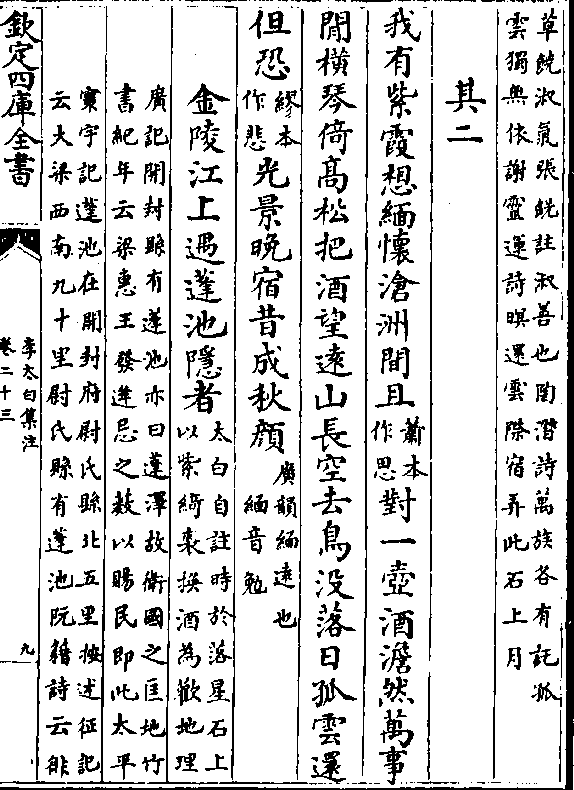 草皖淑氣張皖註淑善也陶潛詩萬族各有託孤
雲獨無依謝靈運詩暝還雲際宿弄此石上月
其二
我有紫霞想緬懷滄洲間且蕭本作思對一壺酒澹然萬事
閒橫琴倚髙松把酒望遠山長空去鳥没落日孤雲還
但恐繆本作悲光景晚宿昔成秋顔廣韻緬遠也緬音勉
金陵江上遇蓬池隱者太白自註時於落星石上以紫綺裘換酒為歡地理
廣記開封縣有蓬池亦曰蓬澤故衛國之匡地竹
書紀年云梁惠王發逄忌之藪以賜民即此太平
寰宇記蓬池在開封府尉氏縣北五里按述征記
云大梁西南九十里尉氏縣有蓬池阮籍詩云徘
欽定四庫全書
李太白集注
卷二十三
九